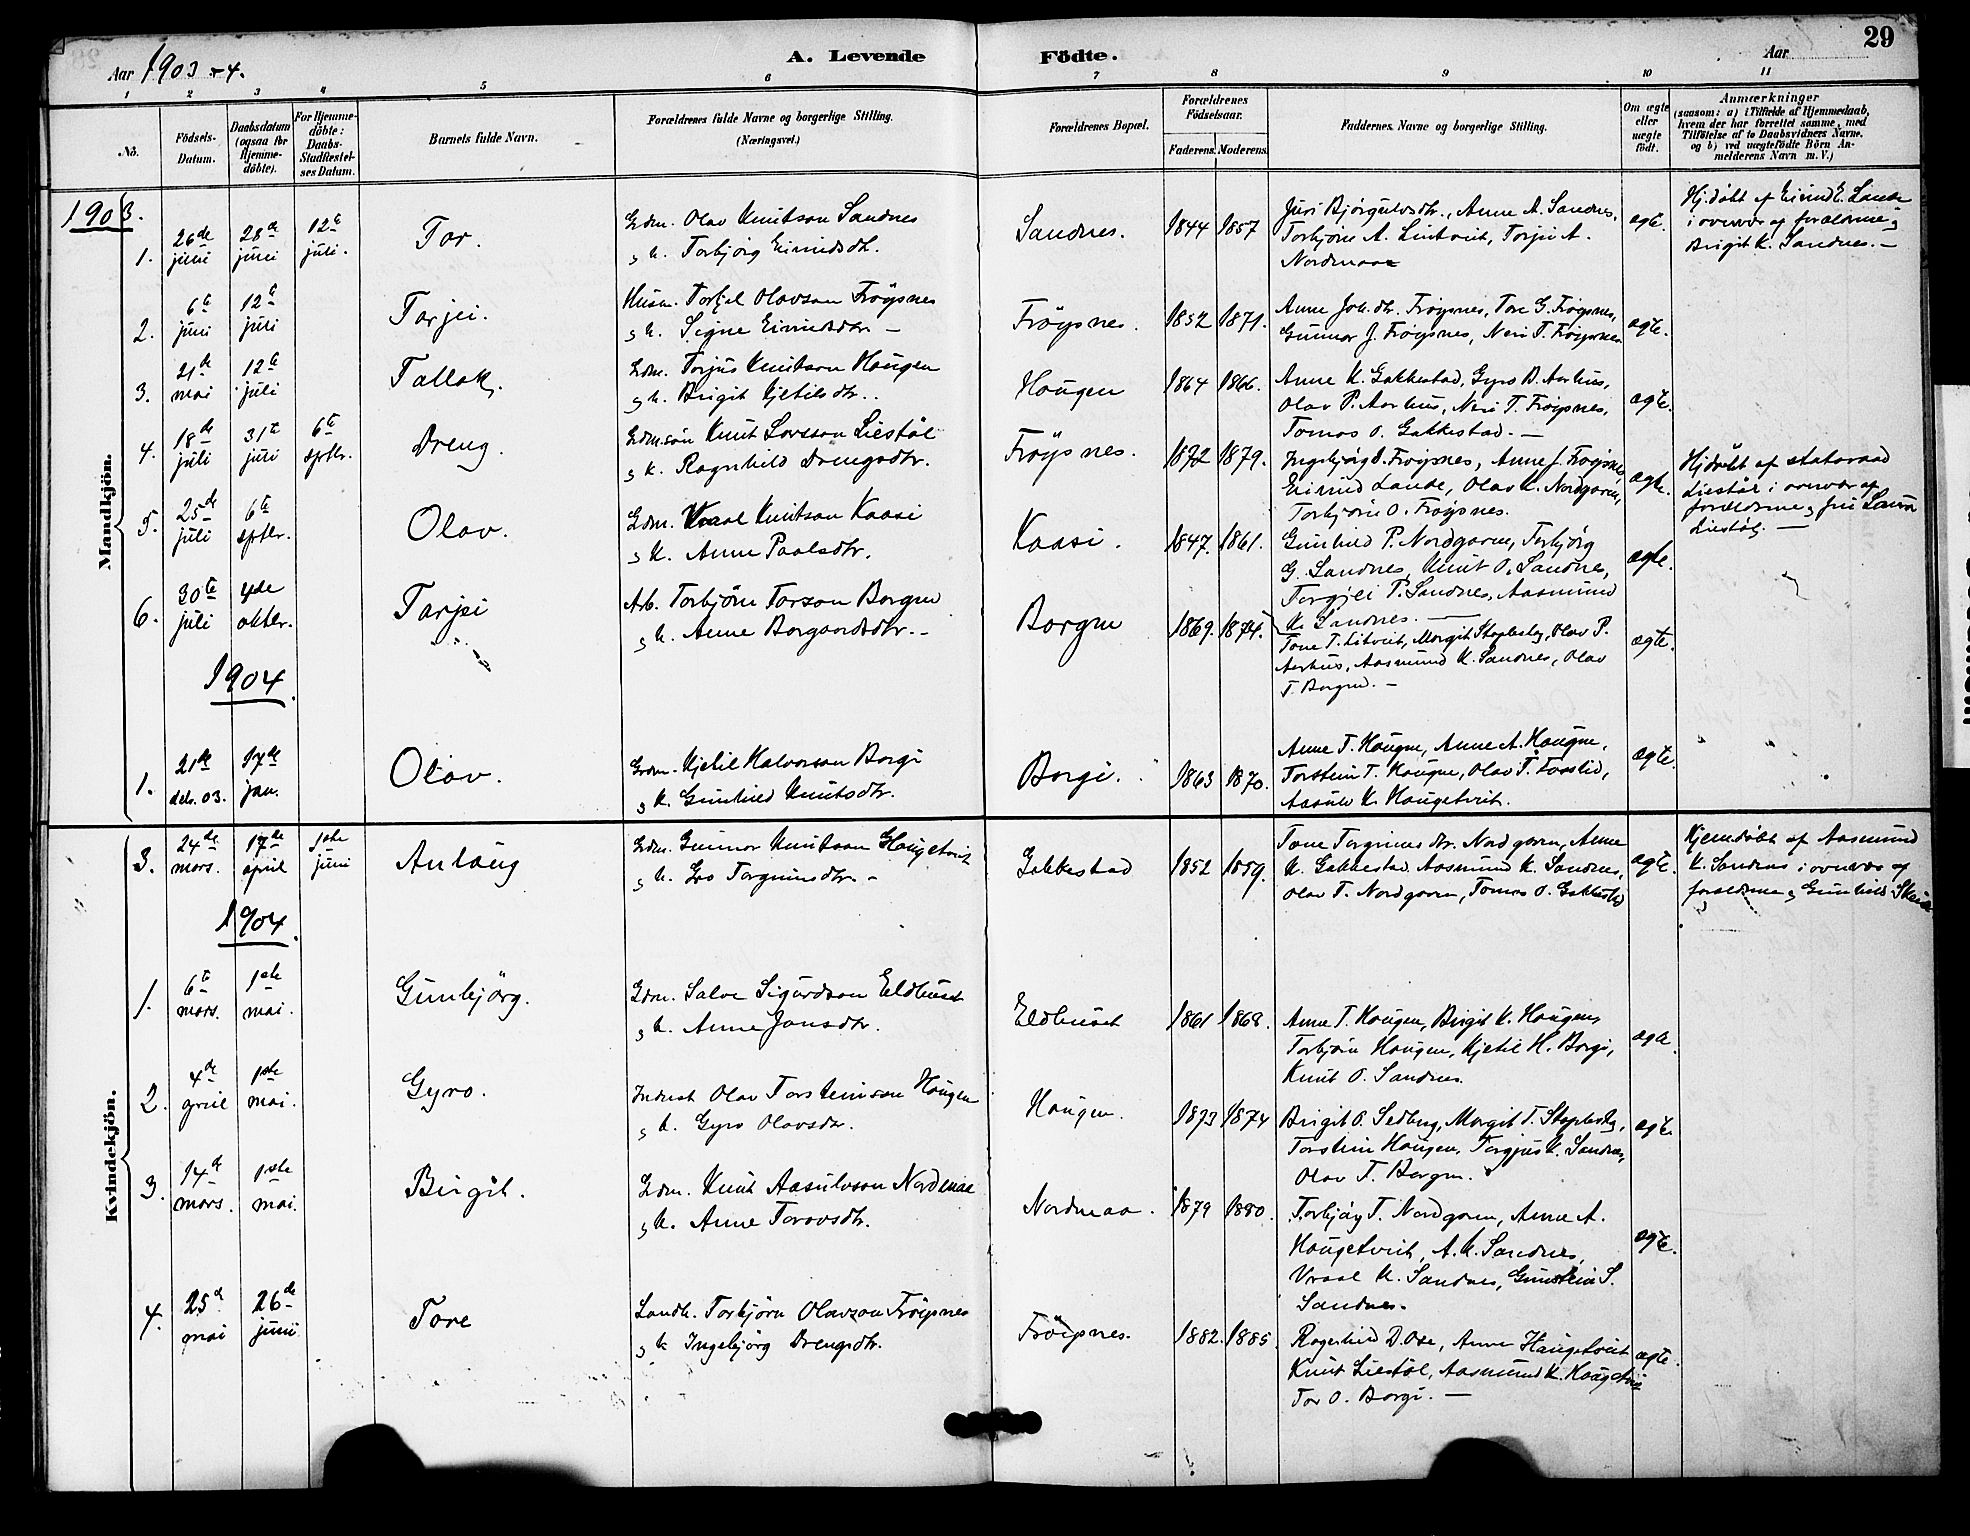 29
Aar 1903-4. A. Levende Födte. Aar
1 2 3 4 5 6 7 8 9 10 11
Nº. Födsels-Datum. Daabsdatum (ogsaa for Hjemme-döbte). For Hjemme-döbte: Daabs-Stadfæstel-ses Datum. Barnets fulde Navn. Forældrenes fulde Navne og borgerlige Stilling. (Næringsvei.) Forældrenes Bopæl. Forældrenes Födselsaar. Faderens. Moderens. Faddernes Navne og borgerlige Stilling. Om ægte eller uægte födt. Anmærkninger (saasom: a) i Tilfælde af Hjemmedaab, hvem der har forrettet samme, med Tilföielse af to Daabsvidners Navne, og b) ved uægtefödte Börn An-melderens Navn m. V.)
Mandkjön.
1903.
1. 26de juni 28de juni 12te juli. Tor.
Grdm. Olav Knutson Sandnes
og k. Torbjörg Eivindsdtr.
Sandnes. 1844 1857
Juri Bjørgulvsdtr., Anne A. Sandnes,
Torbjörn A. Lintveit, Torjei A.
Nordmaa
egte.
Hj.døbt af Eivind E. Lande
i overvær af forældrene og
Birgit K. Sandnes. —
2. 6te juni 12te juli Tarjei.
Husm. Torkjel Olavson Fröysnes
og k. Signe Eivindsdtr —
Fröysnes. 1852 1871.
Anne Joh.dtr. Frøysnes, Tore G. Frøysnes,
Gunnar J. Frøysnes, Neri T. Frøysnes
egte.
3. 21de mai 12te juli Tallak.
Grdm. Torjus Knutson Haugen
og k. Birgit Kjetilsdtr..
Haugen 1864 1866.
Anne K. Gakkestad, Gyro D. Aarhus,
Olav P. Aarhus, Neri T. Frøysnes,
Tomas O. Gakkestad. —
egte.
4. 18de juli 31te juli 6te septbr. Dreng.
Grdm.sön Knut Lavsson Liestöl
og k. Ragnhild Drengsdtr.
Fröysnes. 1872 1879.
Ingebjörg D. Frøysnes, Anne J. Frøysnes,
Eivind Lande, Olav K. Nordgaren,
Torbjörn O. Frøysnes.
egte.
Hjdøbt af statsraad
Liestøl i overvær af
forældrene og fru Laura
Liestøl. —
5. 25de juli 6te septbr. Olav.
Grdm. Vraal Knutson Kaasi
og k. Anne Paalsdtr.
Kaasi. 1847. 1861.
Gunhild P. Nordgaren, Torbjörg
G. Sandnes, Knut O. Sandnes,
Torgjei P. Sandnes, Aasmund
K. Sandnes. —
egte.
6. 30te juli 4de oktbr. Tarjei
Arb. Torbjörn Torson Borgen
og k. Anne Borgarsdtr. —
Borgen 1869. 1874.
Tone T. Litveit, Margit Stapleslej, Olav P.
Aarhus, Aasmund K. Sandnes, Olav
T. Borgen. —
egte.
1904.
1. 21de debr. 03. 17de jan. Olav.
Grdm. Kjetil Halvorson Borgi
og k. Gunhild Knutsdtr.
Borgi. 1863 1870.
Anne T. Haugen, Anne A. Haugen,
Torstein T. Haugen, Olav T. Faaslid,
Aasulv K. Haugetveit.
egte.
Kvindekjön.
3. 24de mars. 17de april 1ste juni Anlaug
Grdm. Gunnar Knutson Haugetveit
og k. Gro Torgrimsdtr. —
Gakkestad 1852 1859.
Tone Torgrimsdtr. Nordgaren, Anne
K. Gakkestad, Aasmund K. Sandnes,
Olav T. Nordgaren, Tomas O. Gakkestad
egte.
Hjemdøbt af Aasmund
K. Sandnes i overvær af
forældrene og Gunhild
1904.
1. 6te mars. 1ste mai. Gunbjörg.
Grdm. Salve Sigurdson Eldhuset
og k. Anne Jonsdtr.
Eldhuset 1861 1868.
Anne T. Haugen, Birgit K. Haugen,
Torbjörn Haugen, Kjetil H. Borgi,
Knut O. Sandnes.
egte.
2. 4de april 1ste mai. Gyro.
Inderst Olav Torsteinson Haugen
og k. Gyro Olavsdtr.
Haugen. 1873 1874
Birgit O. Sedberg, Margit T. Stapleslej,
Torstein Haugen, Torgjus K. Sandnes,
Olav T. Borgen.
egte.
3. 14de mars. 1ste mai. Birgit.
Grdm. Knut Aasulvson Nordmaa
og k. Anne Torovsdtr.
Nordmaa. 1879 1880.
Torbjörg T. Nordgaren, Anne A.
Haugetveit, A.K. Sandnes,
Vraal K. Sandnes, Gunstein S.
Sandnes.
egte.
4. 25de mai 26de juni Tore
Landh. Torbjörn Olavson Fröysnes
og k Ingebjörg Drengsdtr.
Fröysnes. 1882. 1885.
Ragnhild D. Ose, Anne Haugetveit
Knut Liestöl, Aasmund K. Haugetveit
Tor O. Borgi. —
egte.